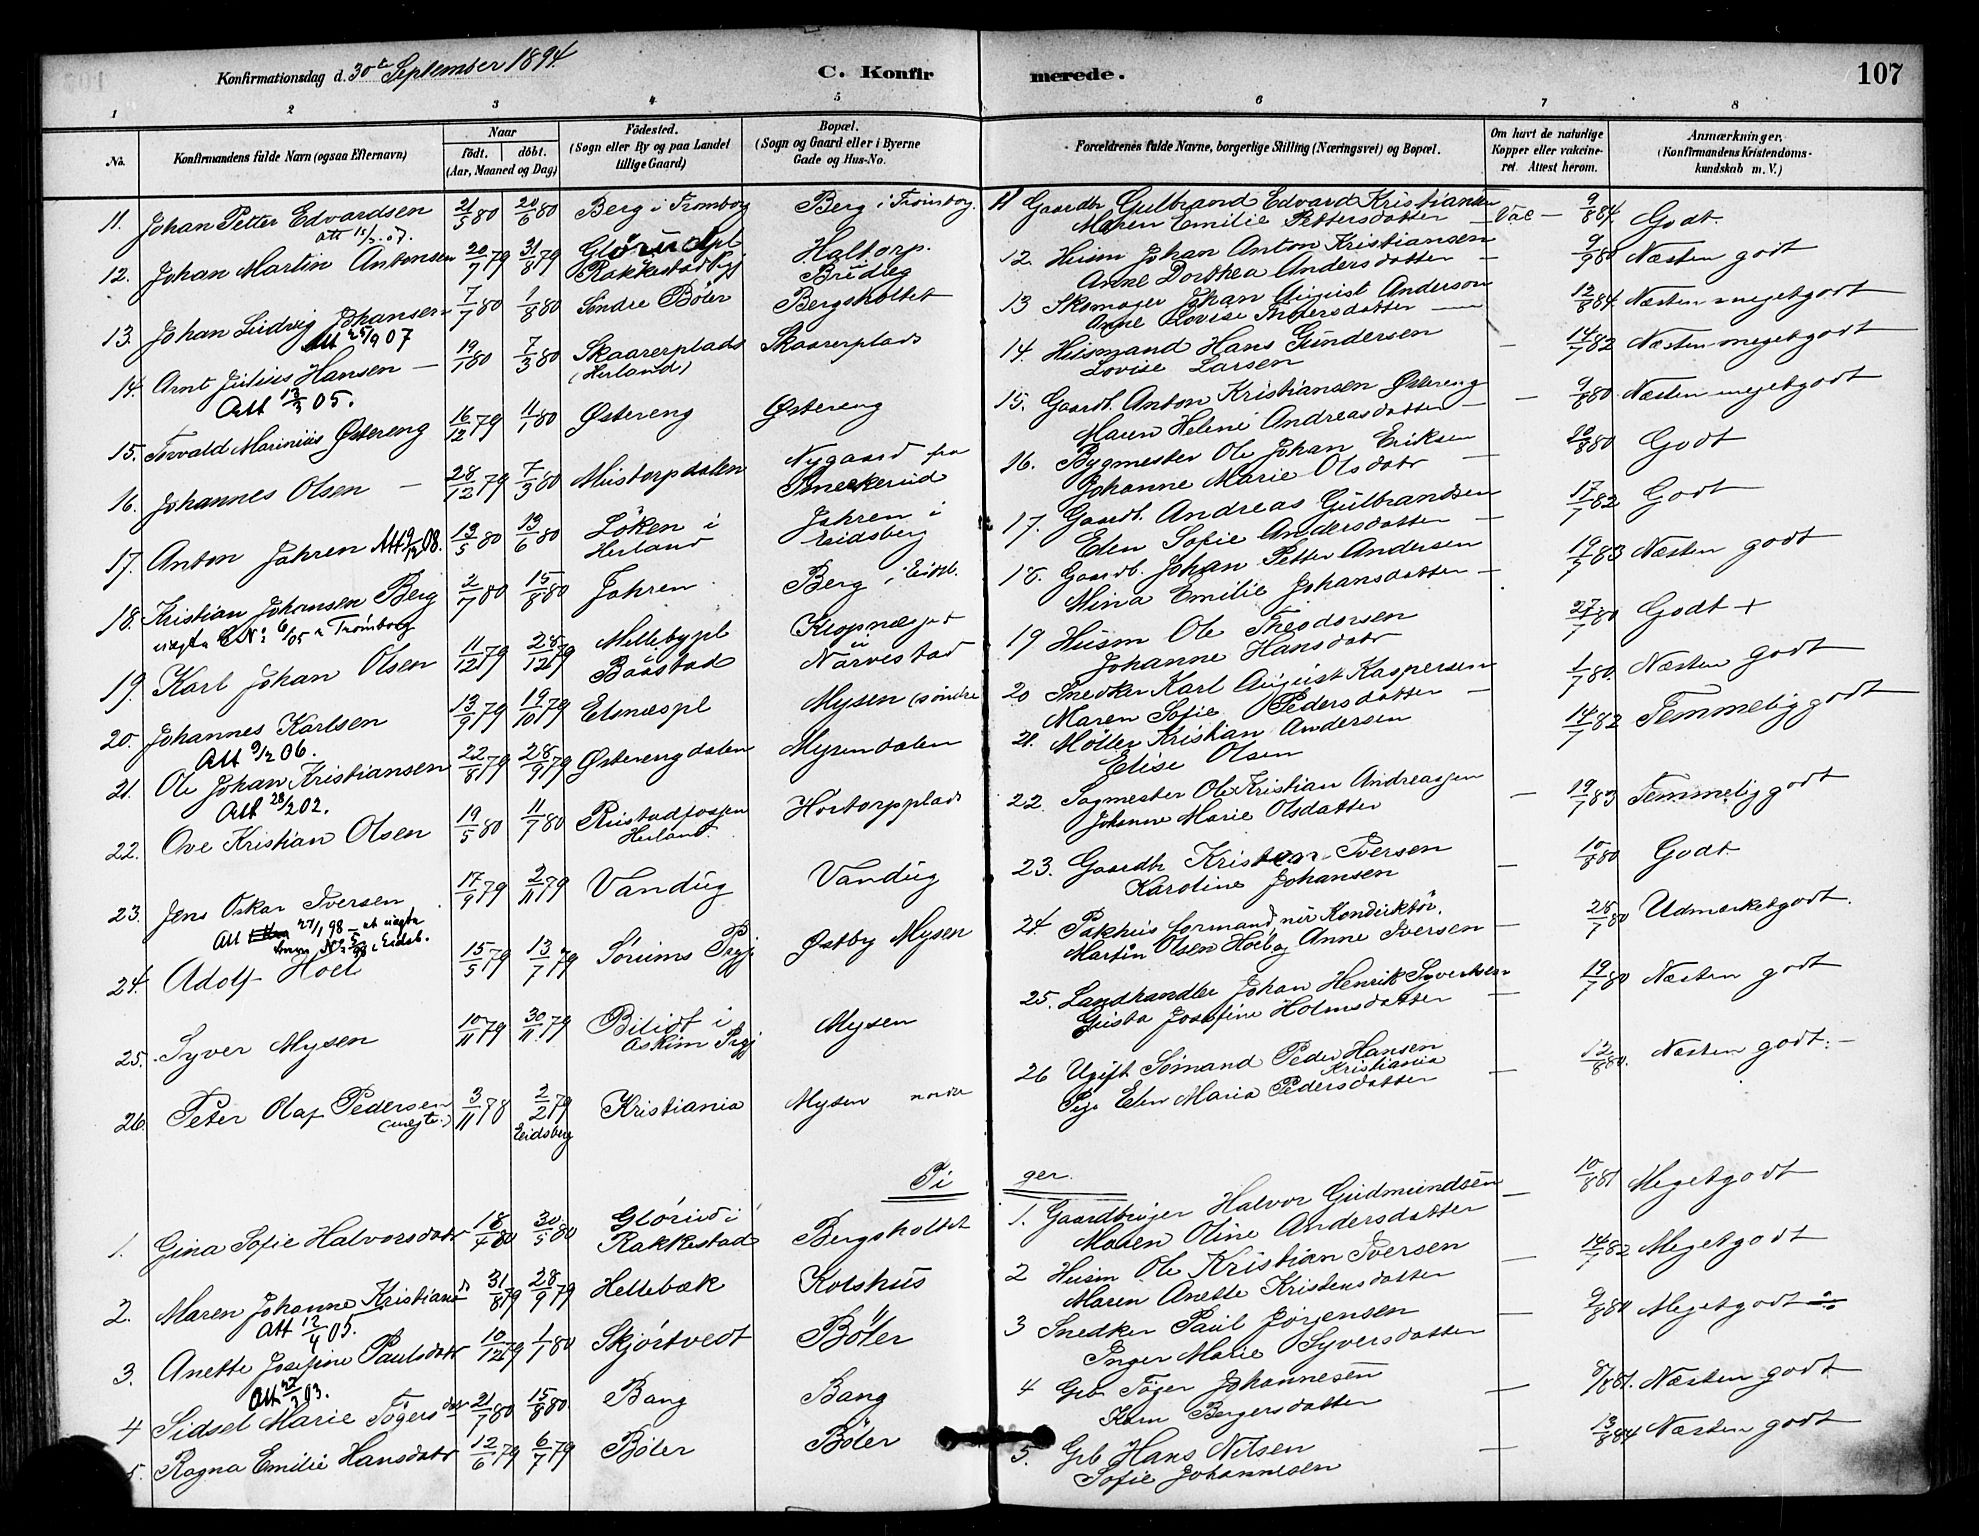 Konfirmationsdag d. 30te September 1894.
C. Konfirmerede.
107
1 2 3 4 5 6 7 8
No.
Konfirmandens fulde Navn (ogsaa Efternavn)
Naar
födt. döbt.
(Aar, Maaned og Dag)
Födested.
(Sogn eller By og paa Landet
tillige Gaard)
Bopæl.
(Sogn og Gaard eller i Byerne
Gade og Hus-No.
Forældrenes fulde Navne, borgerlige Stilling (Næringsvei) og Bopæl.
Om havt de naturlige
Kopper eller vakcine-
ret. Attest herom.
Anmærkninger.
(Konfirmandens Kristendoms-
kundskab m. V.)
11. Johan Petter Edvardsen 21/5 80 20/6 80 Berg i Trømborg Berg i Trømborg 11 Gaardbr. Gulbrand Edvard Kristiansen
Maren Emilie Pettersdatter Vac – 9/8 84 Godt.
12. Johan Martin Antonsen 20/7 79 31/8 79 Glørudpl Rakkestad Pgj Haltorp. Brudleg 12. Husm Johan Anton Kristiansen
Anne Dorthea Andersdatter – 9/9 80 Næsten godt
13. Johan Ludvig Johansen 7/7 80 1/8 80 Søndre Böler Bergsholtet 13 Skomager Johan August Anderson
Anne Lovise Andersdatter – 12/8 84 Næsten meget godt
Att 25/9 07
14. Arnt Julius Hansen – 19/1 80 7/3 80 Skaarerplads (Herland) Skaarerplads 14. Husmand Hans Gundersen
Lovise Larsen – 14/7 82 Næsten meget godt
Att 13/3 05.
15. Torvald Marinius Østereng 16/12 79 11/1 80 Østereng Østereng 15. Gaardb. Anton Kristiansen Østereng
Maren Helene Andreasdatter – 9/8 80 Næsten meget godt
16. Johannes Olsen – 28/12 79 7/3 80 Mustorpdalen Nygaard fra Smeekerud 16. Bygmester Ole Johan Eriksen
Johanne Marie Olsdatr – 80 Godt
17. Anton Jahren Att 9/12 08. 13/5 80 13/6 80 Löken i Herland Jahren i Eidsberg 17. Gaardb. Andreas Gulbrandsen
Elen Sofie Andersdatter – 17/7 82 Godt
18. Kristian Johansen Berg 2/7 80 15/8 80 Jahren Berg i Eidsb. 18. Gaardb. Johan Petter Andersen
Mina Emilie Johansdatter – 19/7 83 Næsten godt
19. Karl Johan Olsen 11/12 79 28/12 79 Mellebypl Baastad Narvestad 19 Husm Ole Theodorsen
Johanne Hansdatr 27/7 80 Godt +
20. Johannes Karlsen 13/9 79 19/10 79 Elsnæspl Mysen (søndre 20 Snedker Karl August Kaspersen
Maren Sofie Pedersdatter – 1/7 80. Næsten godt
Att 9/12 06.
21. Ole Johan Kristiansen 22/8 79 28/9 79 Østerengdalen Mysendalen 21. Møller Kristian Andersen
Elise Olsen 14/7 82 Temmelig godt
Att 28/2 02.
22. Ove Kristian Olsen 19/5 80 11/7 80 Ristadfossen Herland. Hortorpplads 22. Sagmester Ole Kristian Andreassen
Johanne Marie Olsdatter – 19/7 83 Temmelig godt
23. Jens Oskar Iversen 17/9 79 2/11 79 Vandug Vandug 23. Gaardbr Kristen Iversen
Karoline Johansen – 10/8 80 Godt.
24. Adolf Hoel 15/5 79 13/7 79 Sørums Prgj. Østby Mysen 24. Pakhusformand, nu Konduktör,
Martin Olsen Hoel og Anne Iversen – 28/7 80 Udmærket godt.
25. Syver Mysen 10/11 79 30/11 79 Bilidt i Askim Prgj Mysen 25. Landhandler Johan Henrik Syvertsen
Gusta Josefine Holmsdatter – 19/7 80 Næsten godt
26. Peter Olaf Pedersen (uægte.) 3/11 78 2/2 79 Eidsberg Kristiania Mysen nordre 26 Ugift Sømand Peder Hansen Kristiania
Pige Elen Maria Pedersdatter – 12/8 80. Næsten godt. –
Piger.
1. Gina Sofie Halvorsdatr 18/4 80 30/5 80 Glörud i Rakkestad Bergsholtet 1. Gaardbruger Halvor Gudmundsen
Maren Oline Andersdatter – 10/8 81 Meget godt
2. Maren Johanne Kristiansd 31/8 79 28/9 79 Hellebæk Kolshus 2 Husm Ole Kristian Iversen
Maren Anette Kristensdatter – 14/7 82 Meget godt
Att 12/4 05.
3. Anette Josefine Paulsdatr 10/12 79 1/1 80 Skjørtvedt Böler 3 Snedker Paul Jørgensen
Inger Marie Syversdatter – 9/8 80 Meget godt
4 Sidsel Marie Tögersdatr 21/7 80 15/8 80 Bang Bang 4 Grb. Töger Johannesen
Karn Bergersdatter – 81. Næsten godt
5. Ragna Emilie Hansdatr 12/6 79 6/7 79 Böler Böler 5. Grb Hans Nilsen
Sofie Johannesen – 13/8 84 Næsten godt